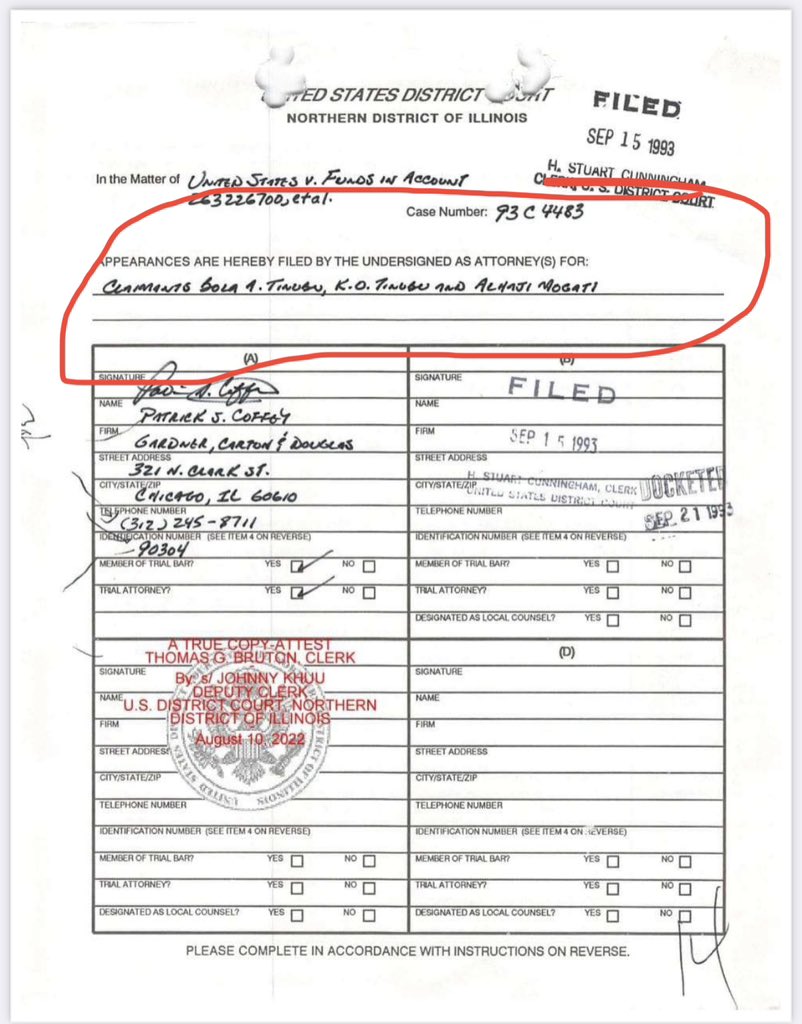 UNITED STATES DISTRICT COURT
NORTHERN DISTRICT OF ILLINOIS
FILED
SEP 15 1993
H. STUART CUNNINGHAM
CLERK, U. S. DISTRICT COURT
In the Matter of UNITED STATES V. FUNDS IN ACCOUNT
263226700, et al.
Case Number: 93 C 4483
APPEARANCES ARE HEREBY FILED BY THE UNDERSIGNED AS ATTORNEY(S) FOR:
CLAIMANTS BOLA A. TINUBU, K.O. TINUBU AND ALHAJI MOGATI
(A)
SIGNATURE
NAME PATRICK J. COFFEY
FIRM GARDNER, CARTON & DOUGLAS
STREET ADDRESS 321 N. CLARK ST.
CITY/STATE/ZIP CHICAGO, IL 60610
TELEPHONE NUMBER (312) 245-8711
IDENTIFICATION NUMBER (SEE ITEM 4 ON REVERSE)
90304
MEMBER OF TRIAL BAR? YES NO
TRIAL ATTORNEY? YES NO
(B)
SIGNATURE
FILED
NAME
FIRM
SEP 15 1993
STREET ADDRESS
H. STUART CUNNINGHAM, CLERK
CITY/STATE/ZIP
UNITED STATES DISTRICT COURT
DOCKETED
TELEPHONE NUMBER
SEP 21 1993
IDENTIFICATION NUMBER (SEE ITEM 4 ON REVERSE)
MEMBER OF TRIAL BAR? YES NO
TRIAL ATTORNEY? YES NO
DESIGNATED AS LOCAL COUNSEL? YES NO
A TRUE COPY-ATTEST
THOMAS G. BRUTON, CLERK
By: s/ JOHNNY KHUU
DEPUTY CLERK
U.S. DISTRICT COURT, NORTHERN
DISTRICT OF ILLINOIS
August 10, 2022
SIGNATURE
NAME
FIRM
STREET ADDRESS
CITY/STATE/ZIP
TELEPHONE NUMBER
IDENTIFICATION NUMBER (SEE ITEM 4 ON REVERSE)
MEMBER OF TRIAL BAR? YES NO
TRIAL ATTORNEY? YES NO
DESIGNATED AS LOCAL COUNSEL? YES NO
(D)
SIGNATURE
NAME
FIRM
STREET ADDRESS
CITY/STATE/ZIP
TELEPHONE NUMBER
IDENTIFICATION NUMBER (SEE ITEM 4 ON REVERSE)
MEMBER OF TRIAL BAR? YES NO
TRIAL ATTORNEY? YES NO
DESIGNATED AS LOCAL COUNSEL? YES NO
PLEASE COMPLETE IN ACCORDANCE WITH INSTRUCTIONS ON REVERSE.
14